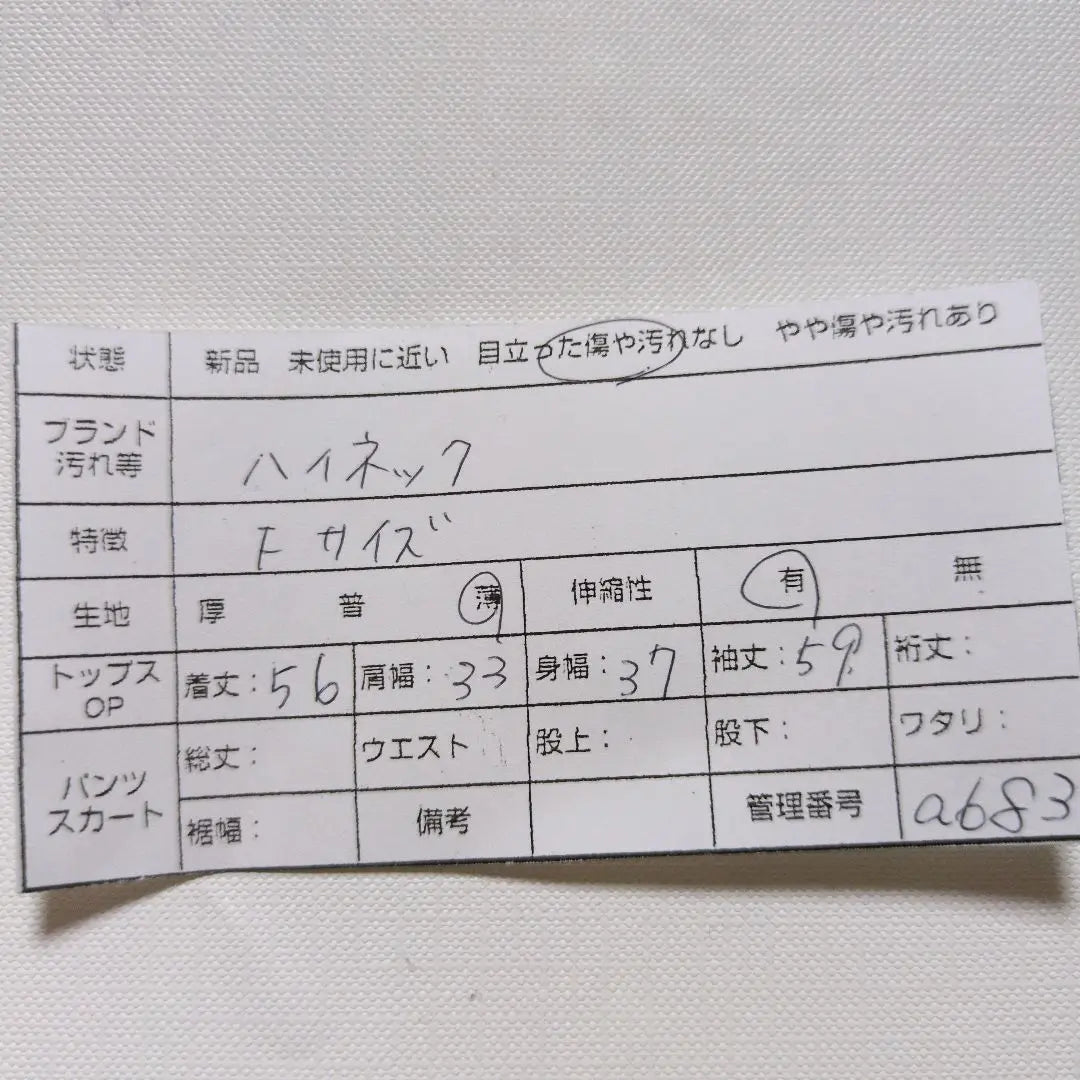 状態 新品 未使用に近い 目立った傷や汚れなし やや傷や汚れあり
ブランド
汚れ等 ハイネック
特徴 Fサイズ
生地 厚 普 薄 伸縮性 有 無
トップス
OP 着丈:56 肩幅:33 身幅:37 袖丈:59 裄丈:
パンツ
スカート 総丈: ウエスト 股上: 股下: ワタリ:
裾幅: 備考 管理番号 a683